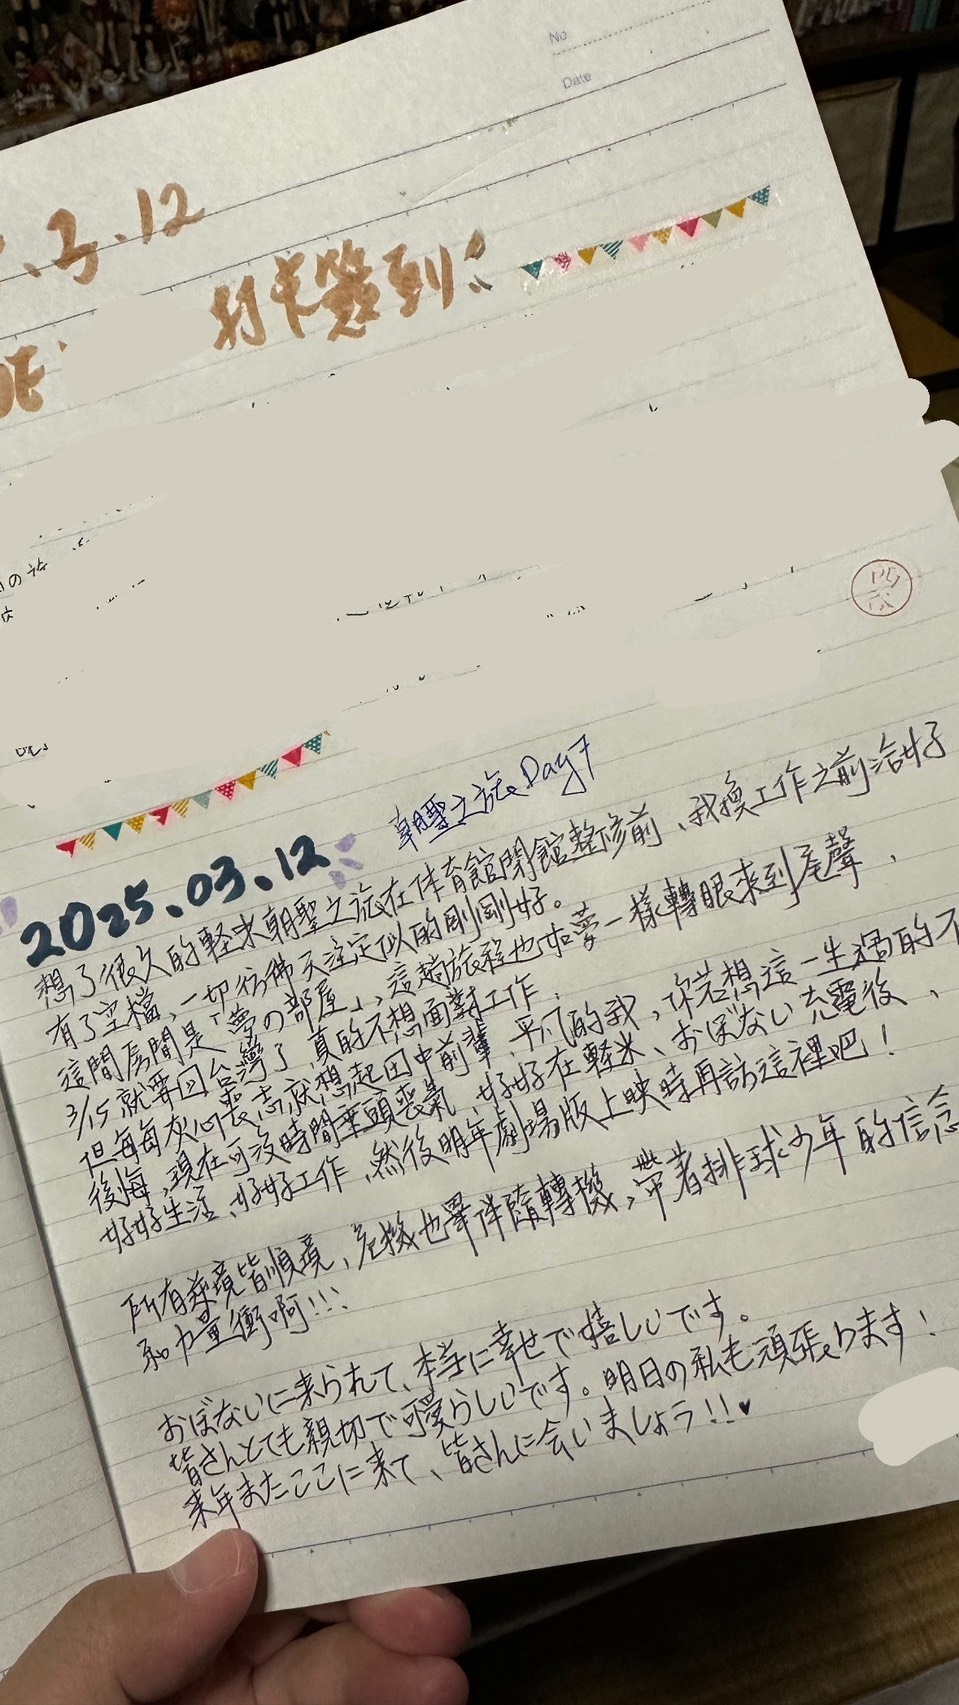 No
Date
.3.12
打卡簽到!!
朝聖之旅Day7
2025.03.12
想了很久的軽米朝聖之旅在体育館閉館整修前、我換工作之前洽好
有了空檔,一切彷彿天注定似的剛剛好。
這間房間是「夢の部屋」,這趟旅程也如夢一樣轉眼來到尾聲,
3/15就要回台灣了,真的不想面對工作,
但每每灰心喪志就想起田中前輩,平凡的我,你若想這一生過的不
後悔,現在可沒時間垂頭喪氣,好好在軽米、おぼない充電後、
好好生活、好好工作,然後明年劇場版上映時再訪這裡吧!
所有逆境皆順境,危機也畢伴隨轉機,帶著排球少年的信念
和力量衝啊!!!
おぼないに来られて、本当に幸せで嬉しいです。
皆さんとても親切で可愛らしいです。明日の私も頑張ります!
来年またここに来て、皆さんに会いましょう!!♥